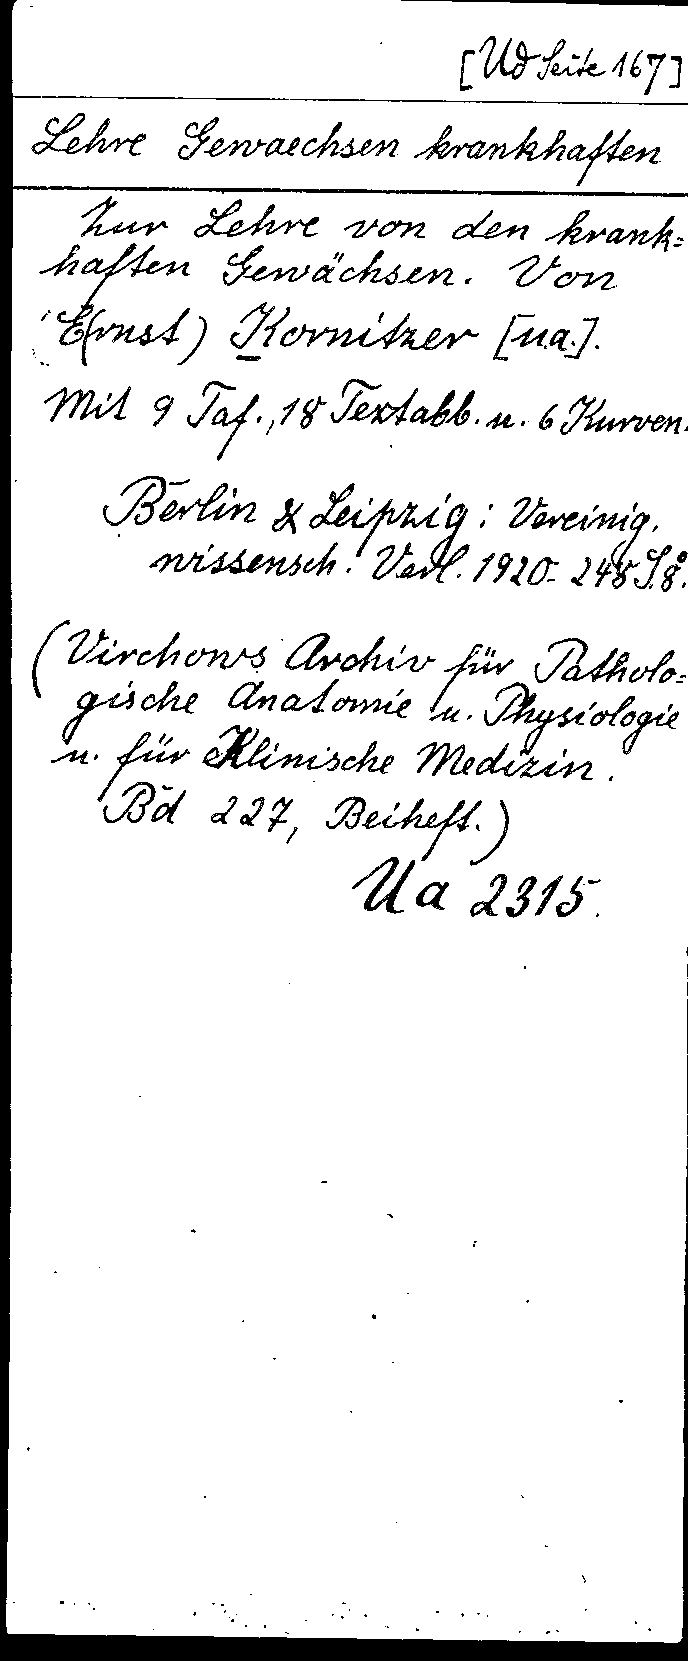 [Ud Seite 167]
Lehre Gewaechsen krankhaften
Zur Lehre von den krank=
haften Gewächsen. Von
E(rnst) Kornitzer [u.a.].
Mit 9 Taf., 18 Textabb. u. 6 Kurven.
Berlin & Leipzig: Vereinig.
wissensch. Verl. 1920. 248 S. 8°.
(Virchows Archiv für Patholo=
gische Anatomie u. Physiologie
u. für Klinische Medizin.
Bd 227, Beiheft.)
Ua 2315.